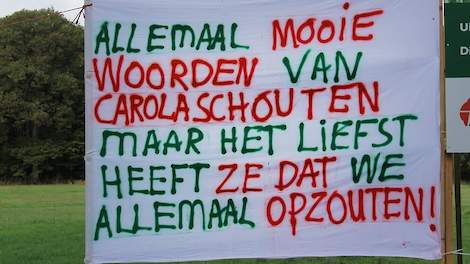 ALLEMAAL MOOIE
WOORDEN VAN
CAROLA SCHOUTEN
MAAR HET LIEFST
HEEFT ZE DAT WE
ALLEMAAL OPZOUTEN!